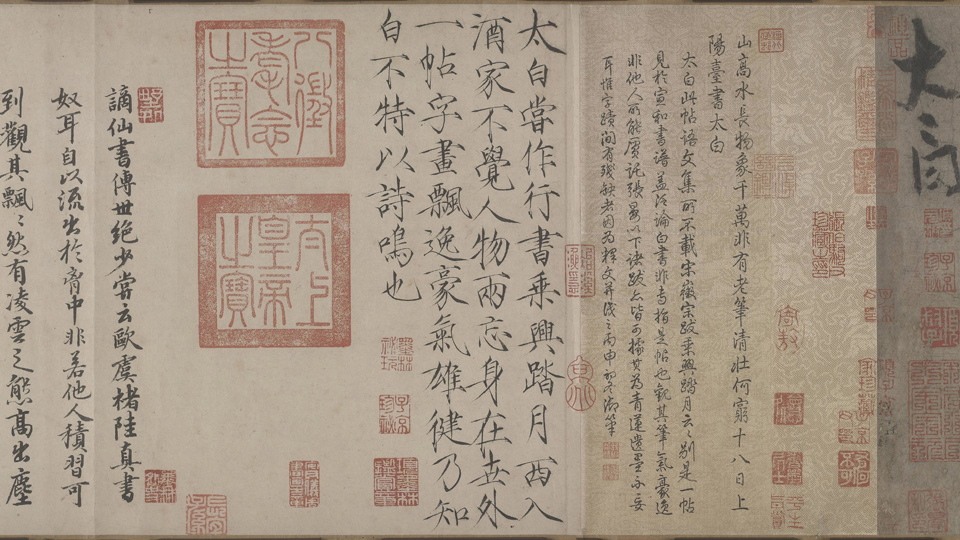 太白
山高水長物象千萬非有老筆清壯何窮十八日上
陽臺書太白
太白此帖語文集所不載宋徽宗跋乘興踏月云〻別是一帖
見於宣和書譜蓋泛論白書非專指是帖也觀其筆氣豪逸
非他人所能贗託張晏以下諸跋亦皆可據其為青蓮遺墨亦妥
耳惟字蹟間有殘缺者因為釋文并識之丙申初冬御筆
太白嘗作行書乘興踏月西入
酒家不覺人物兩忘身在世外
一帖字畫飄逸豪氣雄健乃知
白不特以詩鳴也
八徵耄念之寶
太上皇帝之寶
謫仙書傳世絕少嘗云歐虞褚陸真書
奴耳自以流出於胷中非若他人積習可
到觀其飄〻然有凌雲之態高出塵